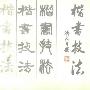 楷書技法
楷書技法
楷書技法
楷書技法